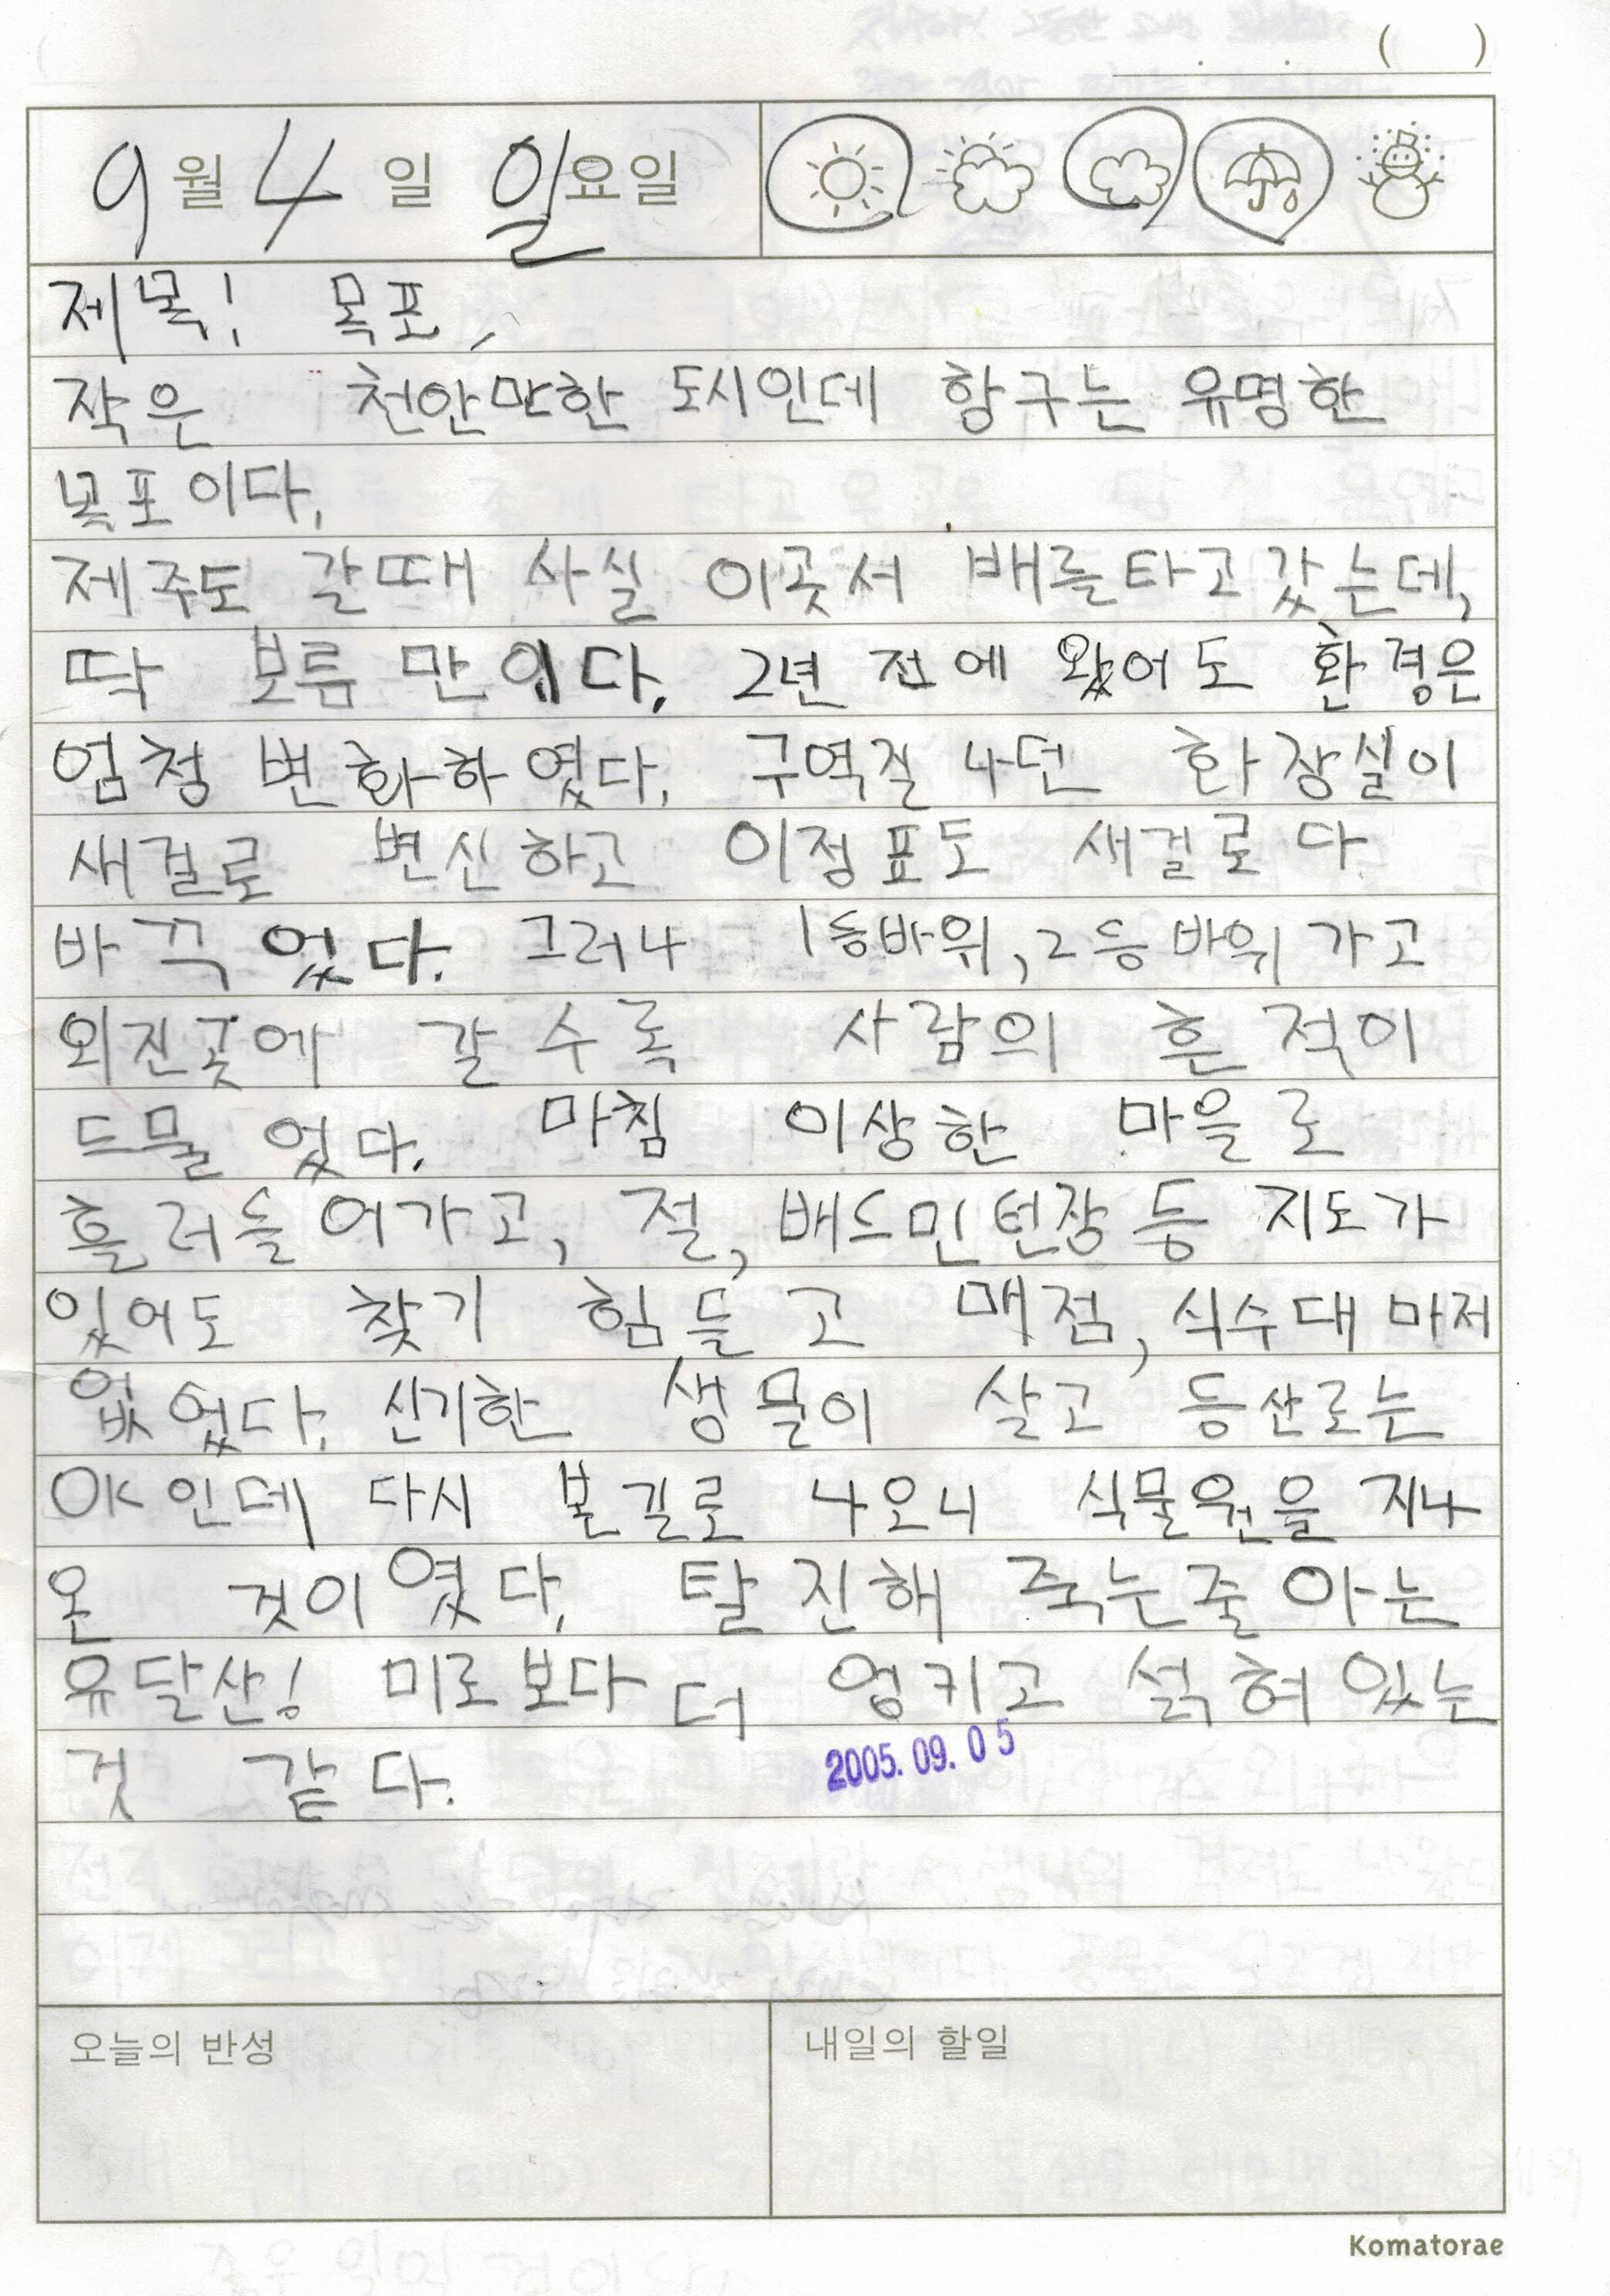 . . ( )
9월 4일 일요일
제목! 목포,
작은 천안만한 도시인데 항구는 유명한
목포이다.
제주도 갈때 사실 이곳서 배를타고갔는데,
딱 보름 만이다. 2년 전에 왔어도 환경은
엄청 변화하였다. 구역질 나던 화장실이
새걸로 변신하고 이정표도 새걸로 다
바끅었다. 그러나 1등바위, 2등바위 가고
외진곳에 갈수록 사람의 흔적이
드물었다. 마침 이상한 마을로
흘러들어가고, 절, 배드민턴장 등 지도가
있어도 찾기 힘들고 매점, 식수대 마저
없었다. 신기한 생물이 살고 등산로는
OK인데 다시 본길로 나오니 식물원을 지나
온 것이였다. 탈진해 죽는줄 아는
유달산! 미로보다 더 엉키고 섥혀있는
것 같다.
2005. 09. 05
오늘의 반성
내일의 할일
Komatorae